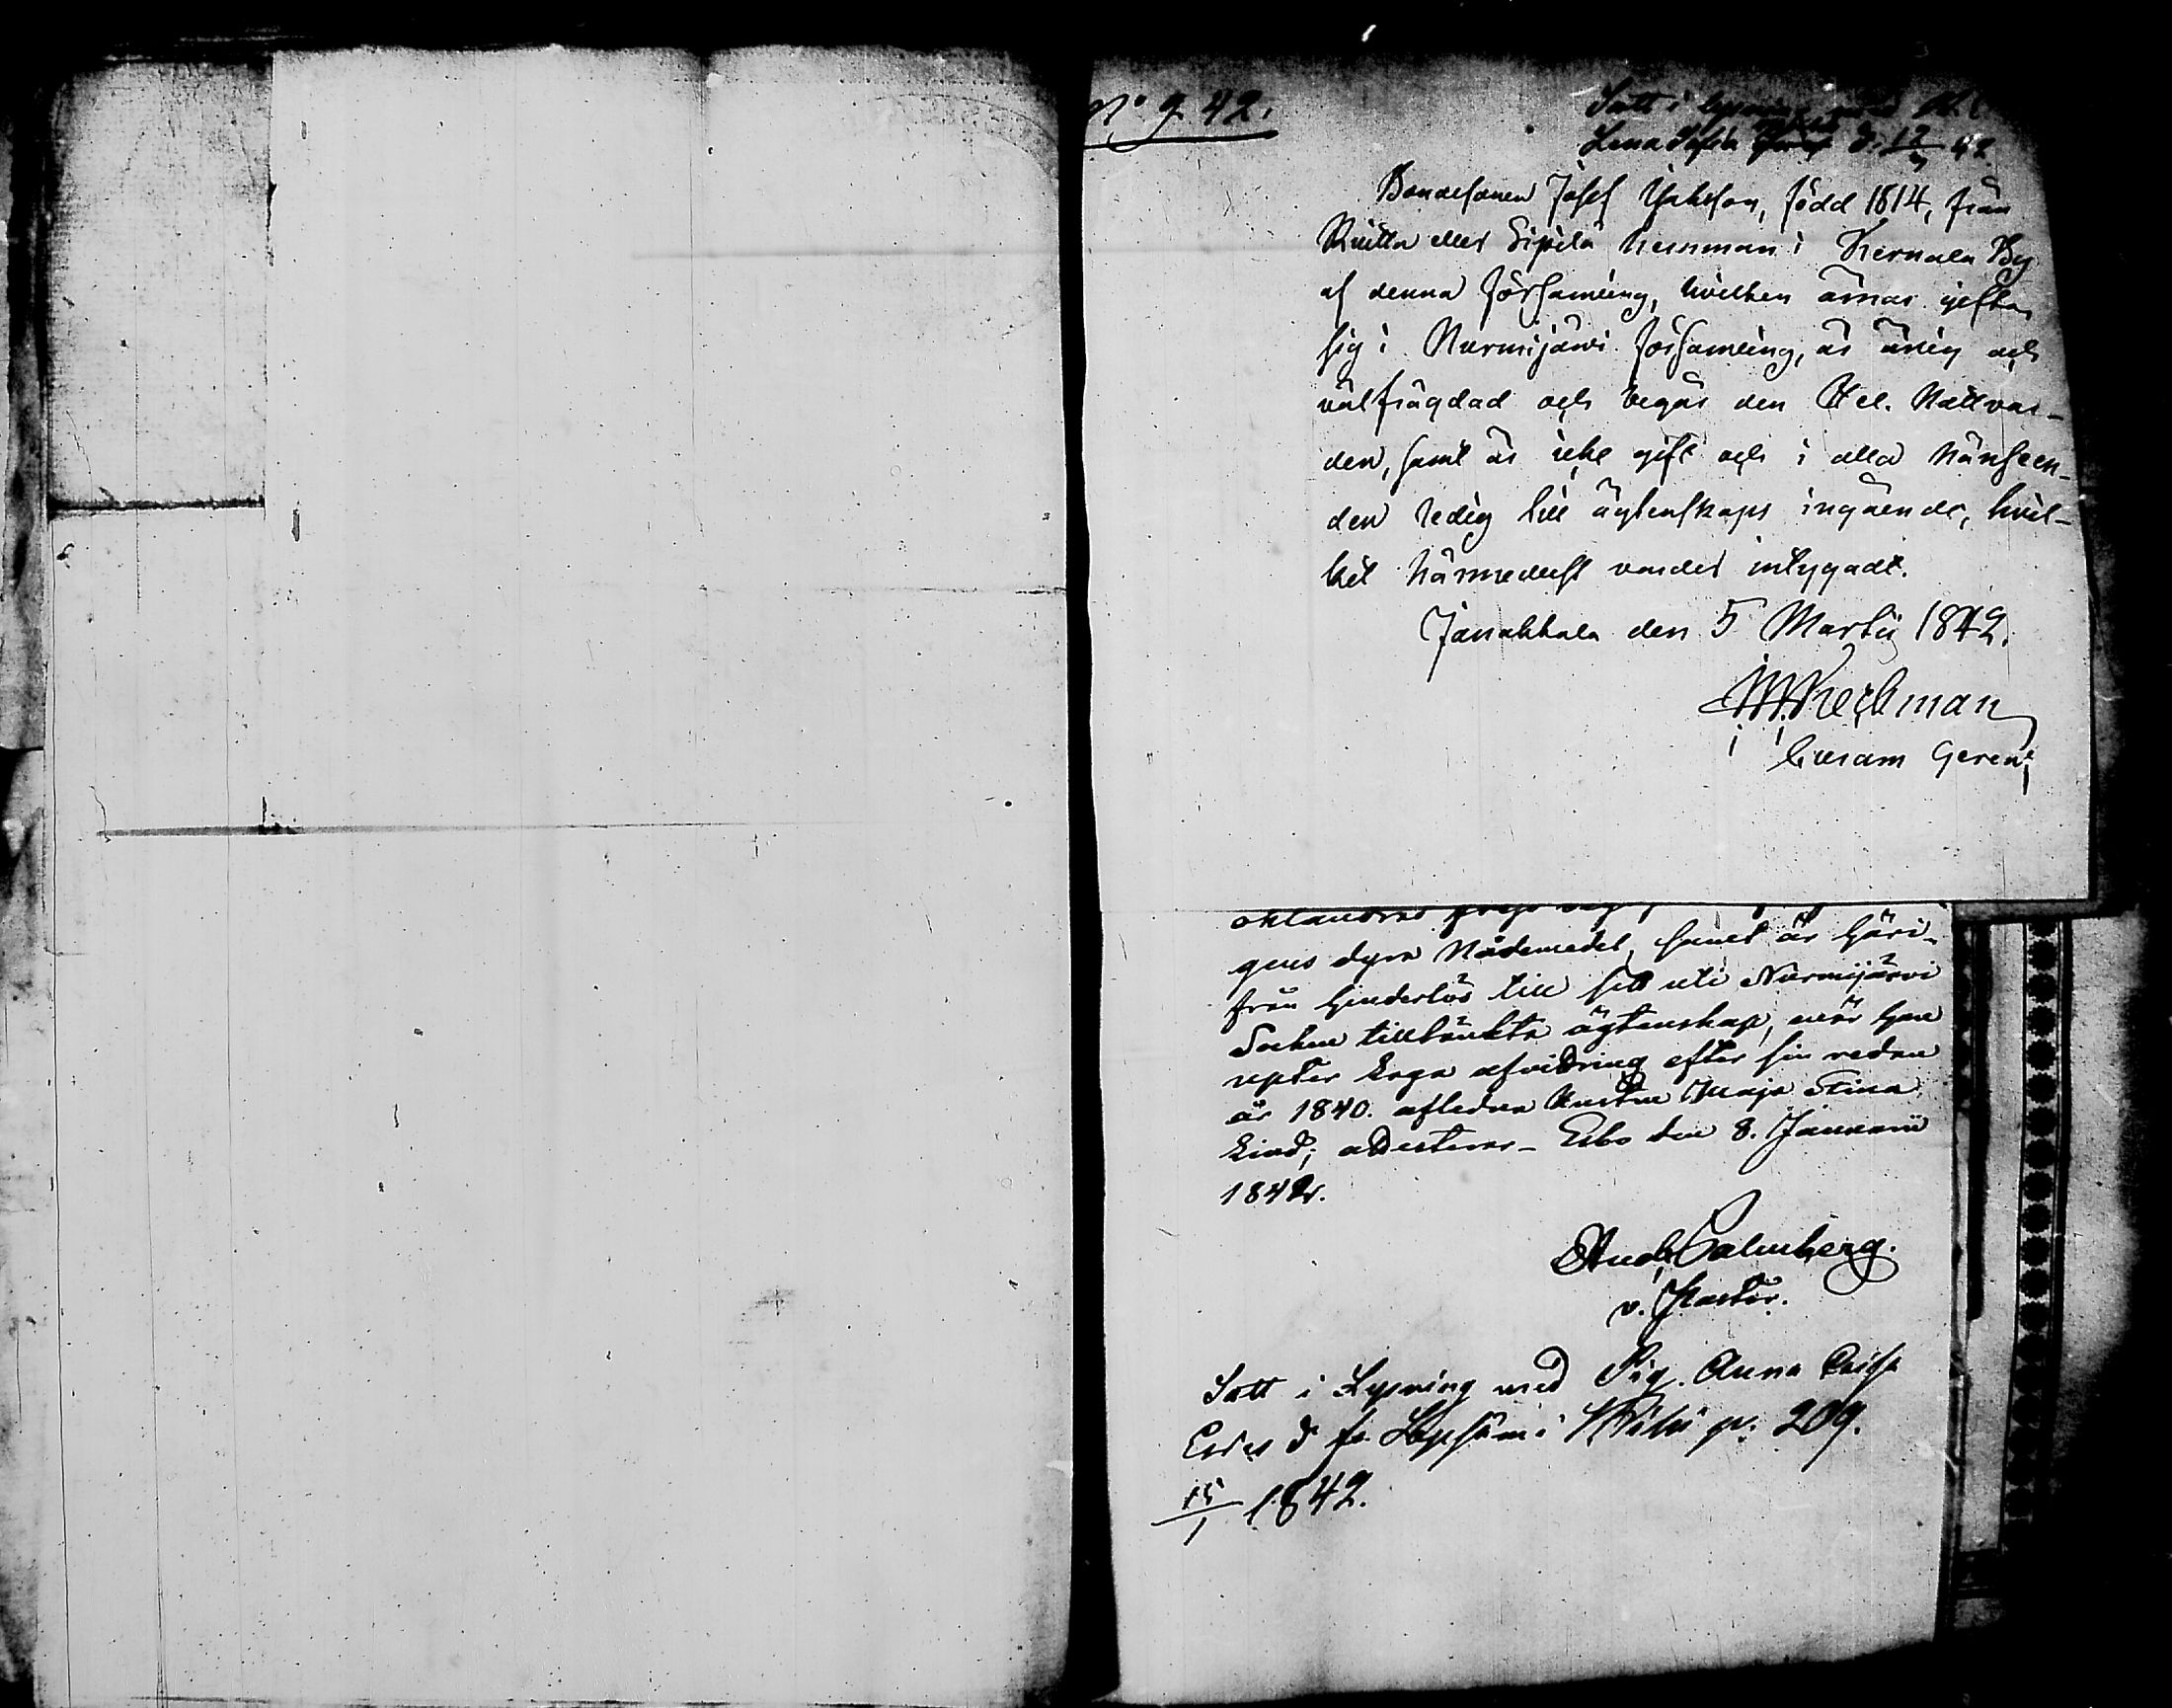 N:o 9. 42.
Satt i lysning med
Lena Sofia d. 12/3 42.
Bondesonen Josef Josefson, född 1814, från
eller Sipilä hemman i Kernala By
af denna Församling, hvilken ärnar gifta
sig i Nurmijärvi Församling, är ärlig och
välfrägdad och begår den Hel. Nattvar-
den, samt är icke gift och i alla hänseen-
den ledig till ägtenskaps ingående, hvil-
ket härmedelst varder intygadt.
Janakkala den 5 Martii 1842.
gens dyra Nådemedel, samt är häri-
från hinderlös till sitt uti Nurmijärvi
Sockne tilltänkta ägtenskap, när han
upter laga afvittring efter sin redan
år 1840. aflidna Hustru Maja Stina
lind; attesterar – Esbo den 8. Januarii
1842.
And. Calenberg.
v. Pastor.
Satt i Lysning med Pig. Anna
Eriks d. fr. Lepsämä p. 209.
15/1 1842.